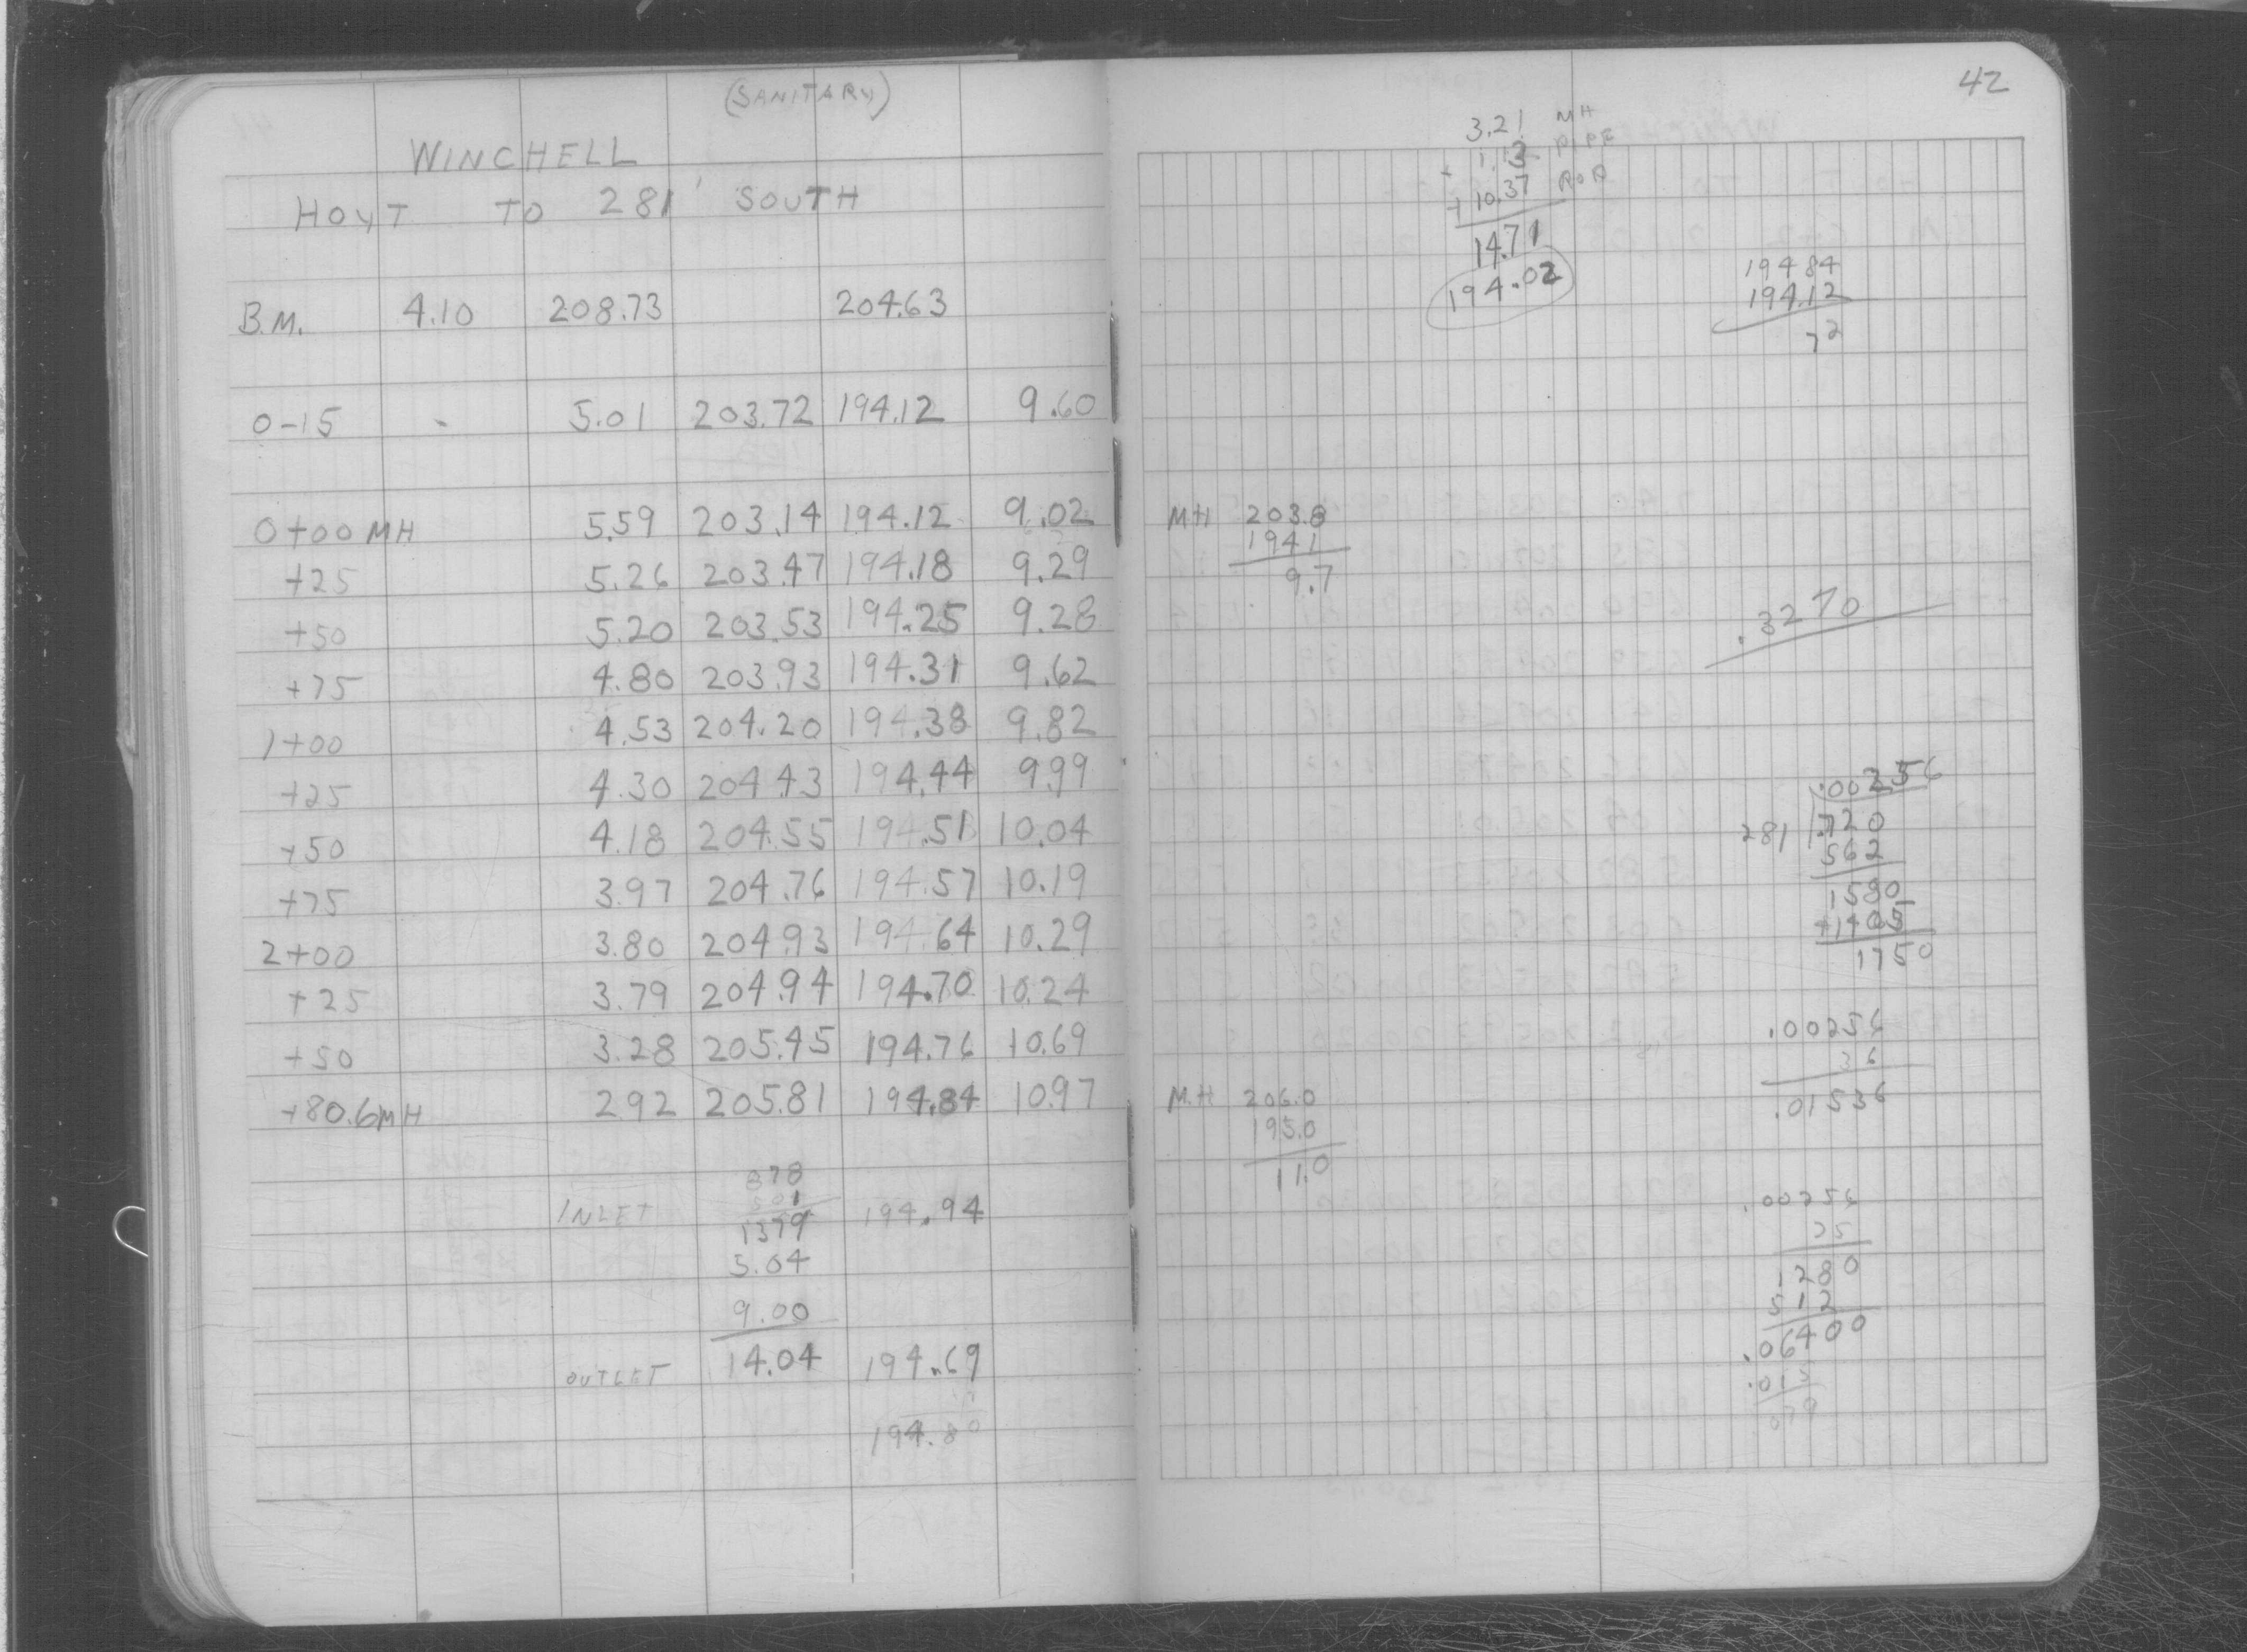 (SANITARY)
WINCHELL
HOYT TO 281' SOUTH
B.M. 4.10 208.73 204.63
0-15 - 5.01 203.72 194.12 9.60
0+00 MH 5.59 203.14 194.12 9.02
+25 5.26 203.47 194.18 9.29
+50 5.20 203.53 194.25 9.28
+75 4.80 203.93 194.31 9.62
1+00 4.53 204.20 194.38 9.82
+25 4.30 204.43 194.44 9.99
+50 4.18 204.55 194.51 10.04
+75 3.97 204.76 194.57 10.19
2+00 3.80 204.93 194.64 10.29
+25 3.79 204.94 194.70 10.24
+50 3.28 205.45 194.76 10.69
+80.6 MH 2.92 205.81 194.84 10.97
878
501
INLET 1379 194.94
5.04
9.00
OUTLET 14.04 194.69
11
194.80
42
3.21 MH
1.13 PIPE
+ 10.37 ROD
14.71
194.02
194 84
194.12
72
MH 203.8
194 1
9.7
.3270
.00256
281 .720
562
1580
1405
1750
.00256
6
.01536
MH 206.0
195.0
11.0
.00256
25
1280
512
.06400
.015
079